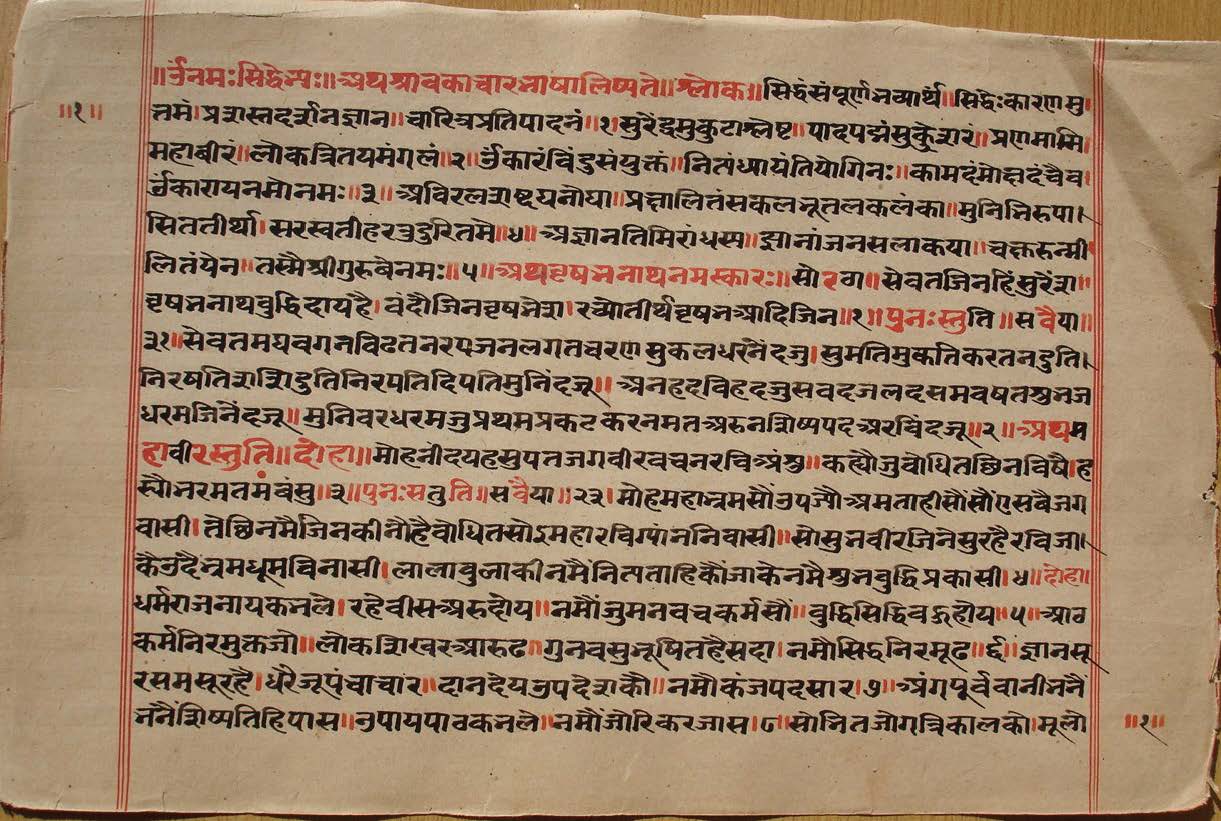 ॥ॐनमःसिद्धेभ्यः॥अथश्रावकाचारभाषालिष्यते॥श्लोक॥सिद्धंसंपूर्णभव्यार्थं॥सिद्धेःकारणमु।
॥१॥
त्तमं।प्रशस्तदर्शनज्ञान॥चारित्रप्रतिपादनं॥१॥सुरेंद्रमुकुटाश्लेष्ट॥पादपद्मंसुकुेशरं॥प्रणमामि
महाबीरं॥लोकत्रितयमंगलं॥२॥ॐकारंविंदुसंयुक्तं॥नितंध्यायंतियोगिनः॥कामदंमोक्षदंचैव।
ॐकारायनमोनमः॥३॥अविरलशष्टघनोघा॥प्रक्षालितंसकलभूतलकलंका॥मुनिभिरुपा।
सिततीर्था।सरस्वतीहरतुदुरितमे॥४॥अज्ञानतिमिरांधस्य॥ज्ञानांजनसलाकया॥चक्षुरुन्मी
लितंयेन॥तस्मैश्रीगुरुवेनमः॥५॥अथवृषभनाथनमस्कारः॥सोरठा॥सेवतजिनहिंसुरेश॥
वृषभनाथबुद्धिदायहै।वंदौजिनवृषभेश।रच्योतीर्थवृषभआदिजिन॥१॥पुनःस्तुति॥सवैया॥
३१॥सेवतमघवगनविढतनरपजनलगतचरणसुकलधरनैंदजु।सुमतिमुकतिकरतनदुति।
निरषतिशशिदुतिनिरपतिदिपतिमुनिंदजू॥अनहदविहदजुसवदजलदसमवषतशुभज
धरमजिनैंदजू॥मुनिवरधरमजुप्रथमप्रकटकरनमतअरुनशिष्यपदअरविंदजू॥२॥अथम
हावीरस्तुति॥दोहा॥मोहनींदयहसुपतजगवीरवचनरविअंसु॥कह्यौजुवोधितछिनविषै।ह
स्यौभरमतमंवंसु॥३॥पुनःसतुति॥सवैया॥२३।मोहमहाभ्रमसौंउपज्यौअमताहीसौंसोएसवैजग
वासी।तेछिनमैजिनकीनौहैवोधितसोऽमहारविग्यांननिवासी॥सोसुभवीरजिनेसुरहैरविजा।
केउदैभ्रमधूमविनासी।लालावुलाकीनमैनित्यताहिकौंजाकेनमैशुभबुद्धिप्रकासी।४॥दोहा।
धर्मराजनायकभले।रहैवीसअरुदोय॥नमौंजुमनवचकर्मसौं॥बुद्धिसिद्धिवहुहोय॥५॥आठ
कर्मनिरमुक्तजौ॥लोकशिखरआरुढ॥गुनवसुभूषितहैसदा।नमौसिद्धनिरमूढ॥६॥ज्ञानसू
रसमसूरहै।धरैजूपंचाचार॥दानदेयउपदेशकौ॥नमौकंजपदसार।७॥अंगपूर्ववानीभनैं
नैंशिष्यतिहिपास॥उपायपाठकभले॥नमौंजोरिकरजास।८॥सोनितजोगत्रिकालको।मूलो
॥१॥